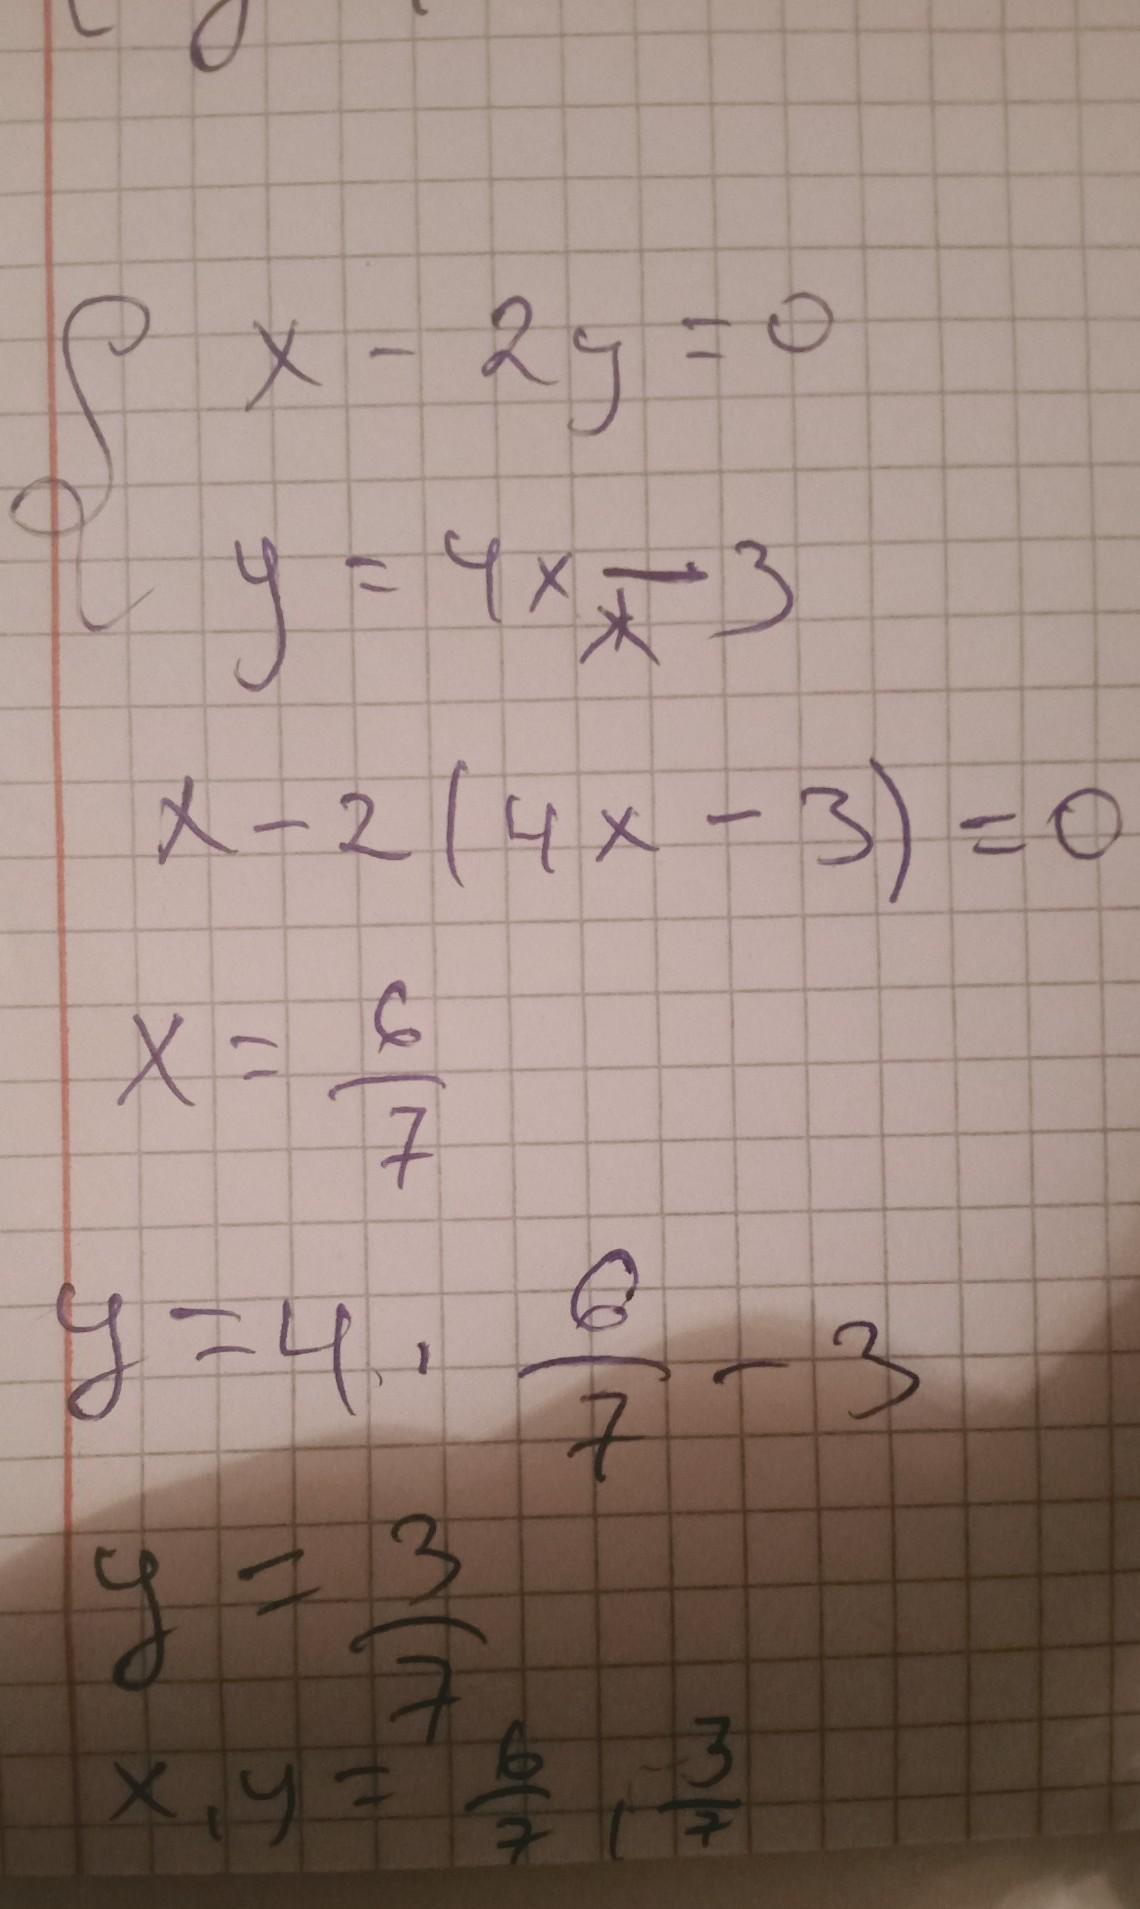 x - 2y = 0
y = 4x - 3
x - 2(4x - 3) = 0
x = 6/7
y = 4 · 6/7 - 3
y = 3/7
x, y = 6/7, 3/7